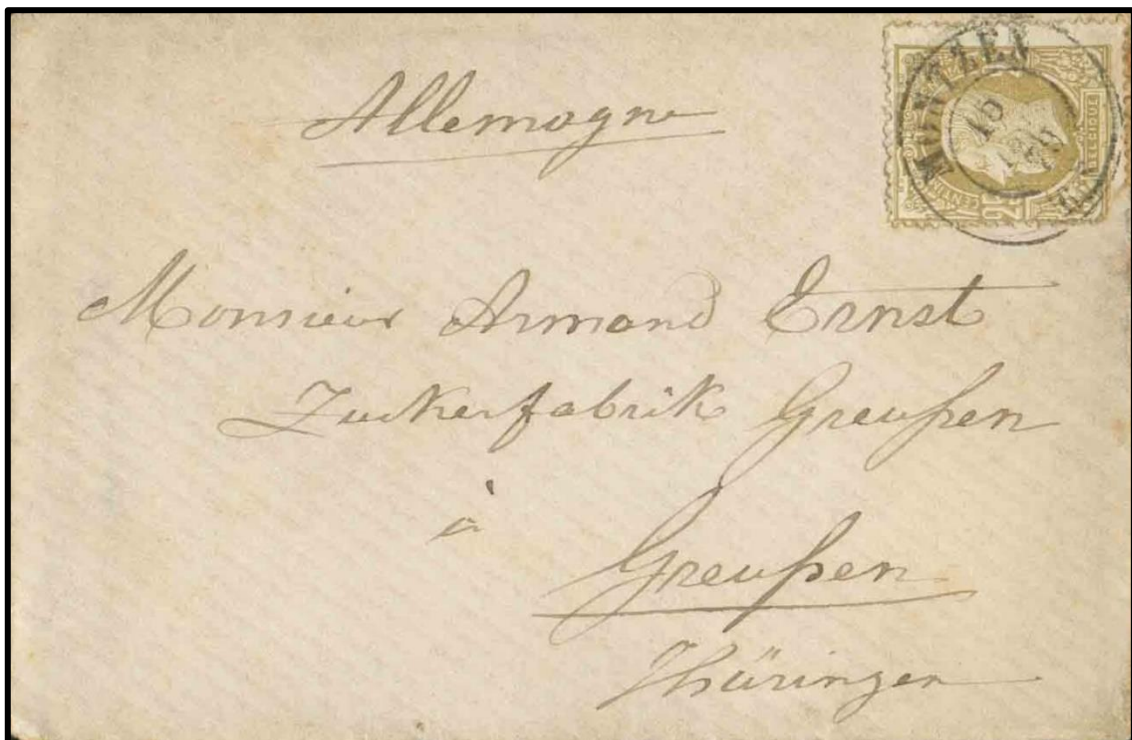 Allemagne
MONTZEN
18
BELGIQUE
25
Monsieur Armand Ernst
Zuckerfabrik Greußen
à
Greußen
Thüringen